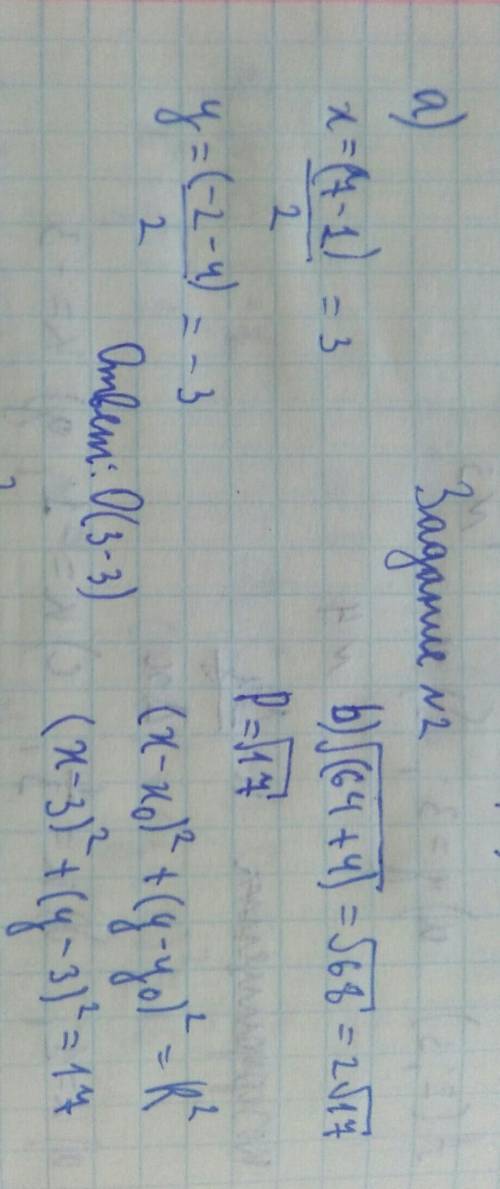 Задание №2
a)
x = (7-1)/2 = 3
y = (-2-4)/2 = -3
Ответ: O(3-3)
b) √(64+4) = √68 = 2√17
P = √17
(x-x₀)² + (y-y₀)² = R²
(x-3)² + (y-3)² = 17